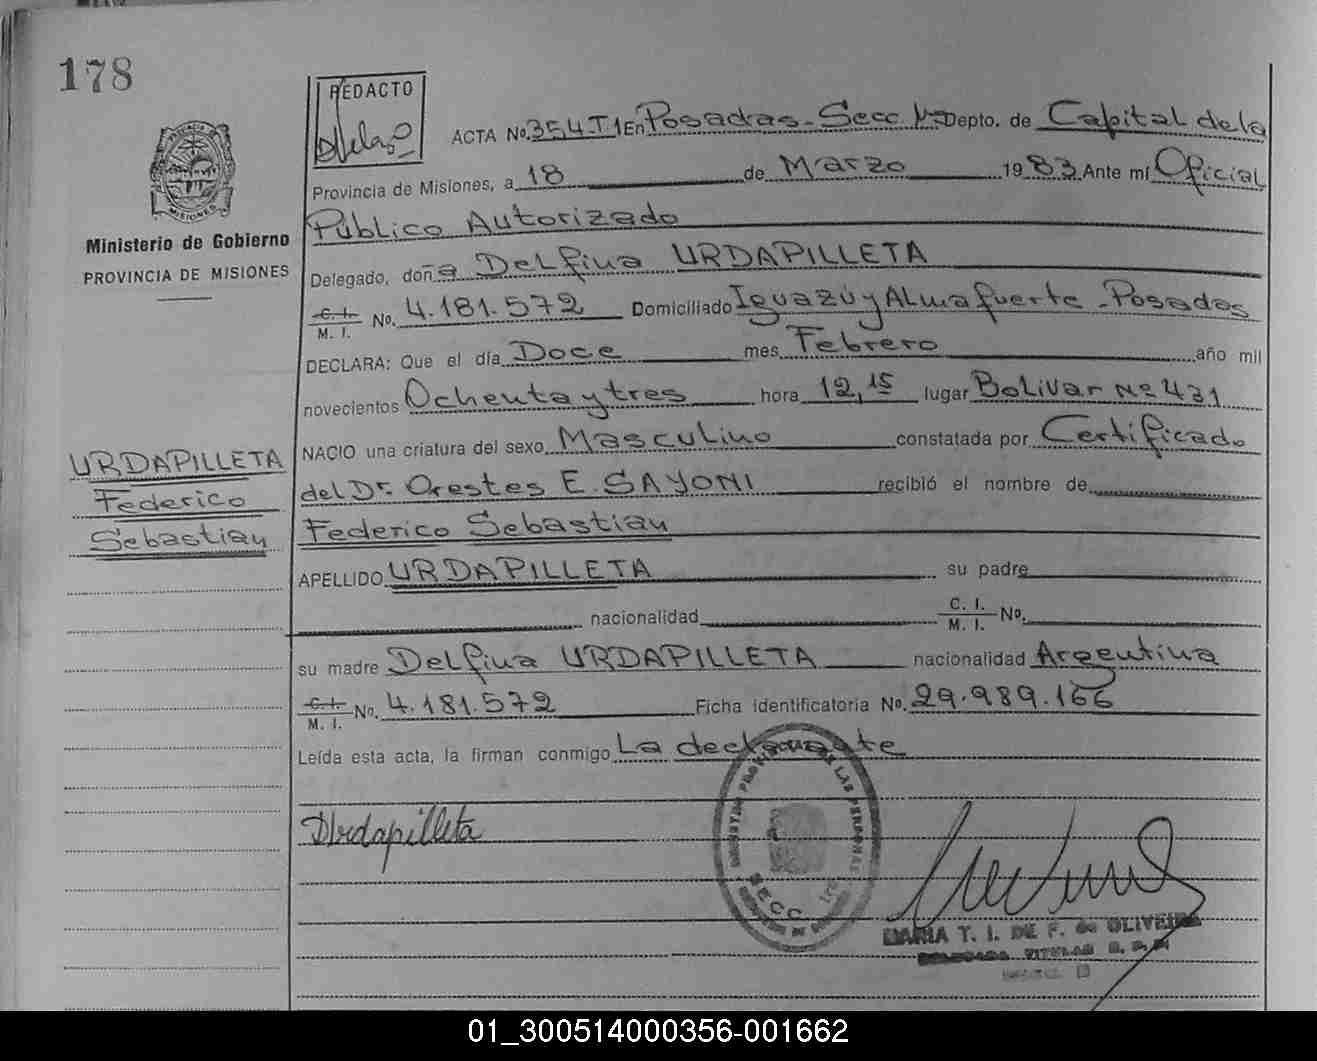 178
REDACTO
ACTA No. 354 T1 En Posadas - Secc 1ra Depto. de Capital de la
Provincia de Misiones, a 18 de Marzo 1983 Ante mí Oficial
Público Autorizado
Delegado, doña Delfina URDAPILLETA
C. I. M. I. No. 4.181.572 Domiciliado Iguazú y Almafuerte - Posadas
DECLARA: Que el día Doce mes Febrero año mil
novecientos Ochenta y tres hora 12,15 lugar Bolivar Nº 431
NACIO una criatura del sexo Masculino constatada por Certificado
del Dr. Orestes E. SAYONI recibió el nombre de
Federico Sebastian
APELLIDO URDAPILLETA su padre
nacionalidad C. I. M. I. No.
su madre Delfina URDAPILLETA nacionalidad Argentina
C. I. M. I. No. 4.181.572 Ficha identificatoria No. 29.989.166
Leída esta acta, la firman conmigo La declarante
DUrdapilleta
MISIONES
Ministerio de Gobierno
PROVINCIA DE MISIONES
URDAPILLETA
Federico
Sebastian
REGISTRO PROVINCIAL DE LAS PERSONAS
SECC. 1ra
MARIA T. I. DE F. de OLIVEIRA
DELEGADA TITULAR R. P. P.
01_300514000356-001662